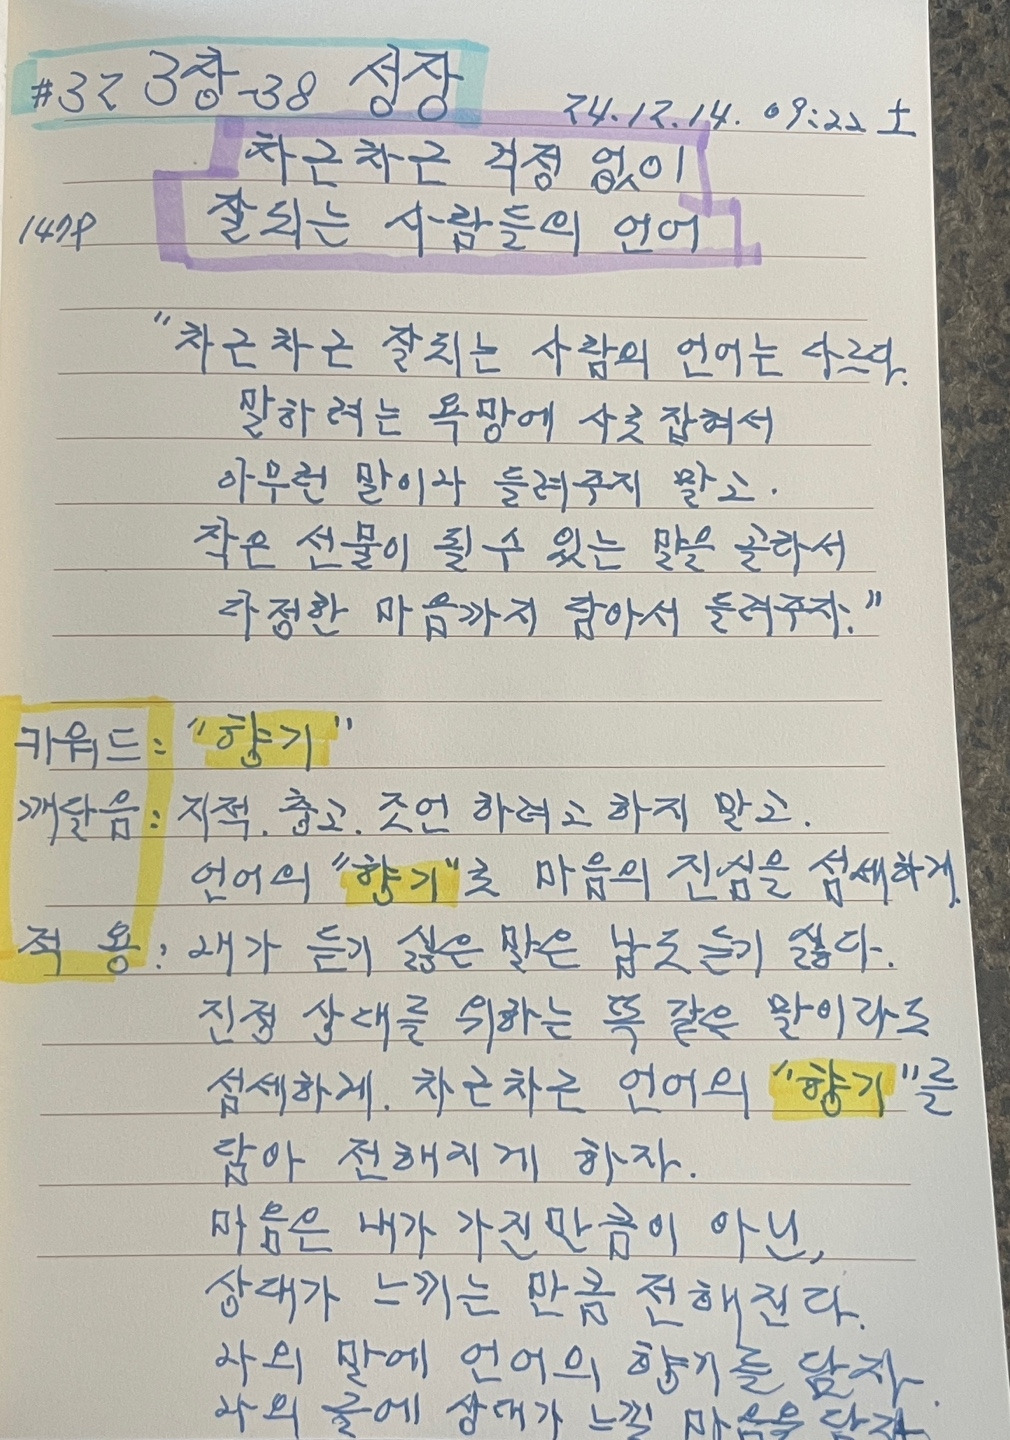 #32 3장-38 성장
24.12.14. 09:22 土
차근차근 걱정 없이
147P 잘되는 사람들의 언어
"차근차근 잘되는 사람의 언어는 다르다.
말하려는 욕망에 사로잡혀서
아무런 말이나 들려주지 말고.
작은 선물이 될 수 있는 말을 골라서
다정한 마음까지 담아서 들려주자."
키워드: "향기"
깨달음: 지적. 충고. 조언 하려고 하지 말고.
언어의 "향기"로 마음의 진심을 섬세하게.
적용: 내가 듣기 싫은 말은 남도 듣기 싫다.
진정 상대를 위하는 똑같은 말이라도
섬세하게. 차근차근 언어의 "향기"를
담아 전해지게 하자.
마음은 내가 가진만큼이 아닌,
상대가 느끼는 만큼 전해진다.
나의 말에 언어의 향기를 담자.
나의 글에 상대가 느낄 마음을 담자